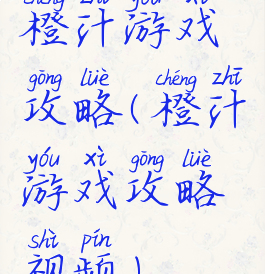 chéng zhī yóu xì
橙汁游戏
gōng lüè chéng zhī
攻略(橙汁
yóu xì gōng lüè
游戏攻略
shì pín
视频)